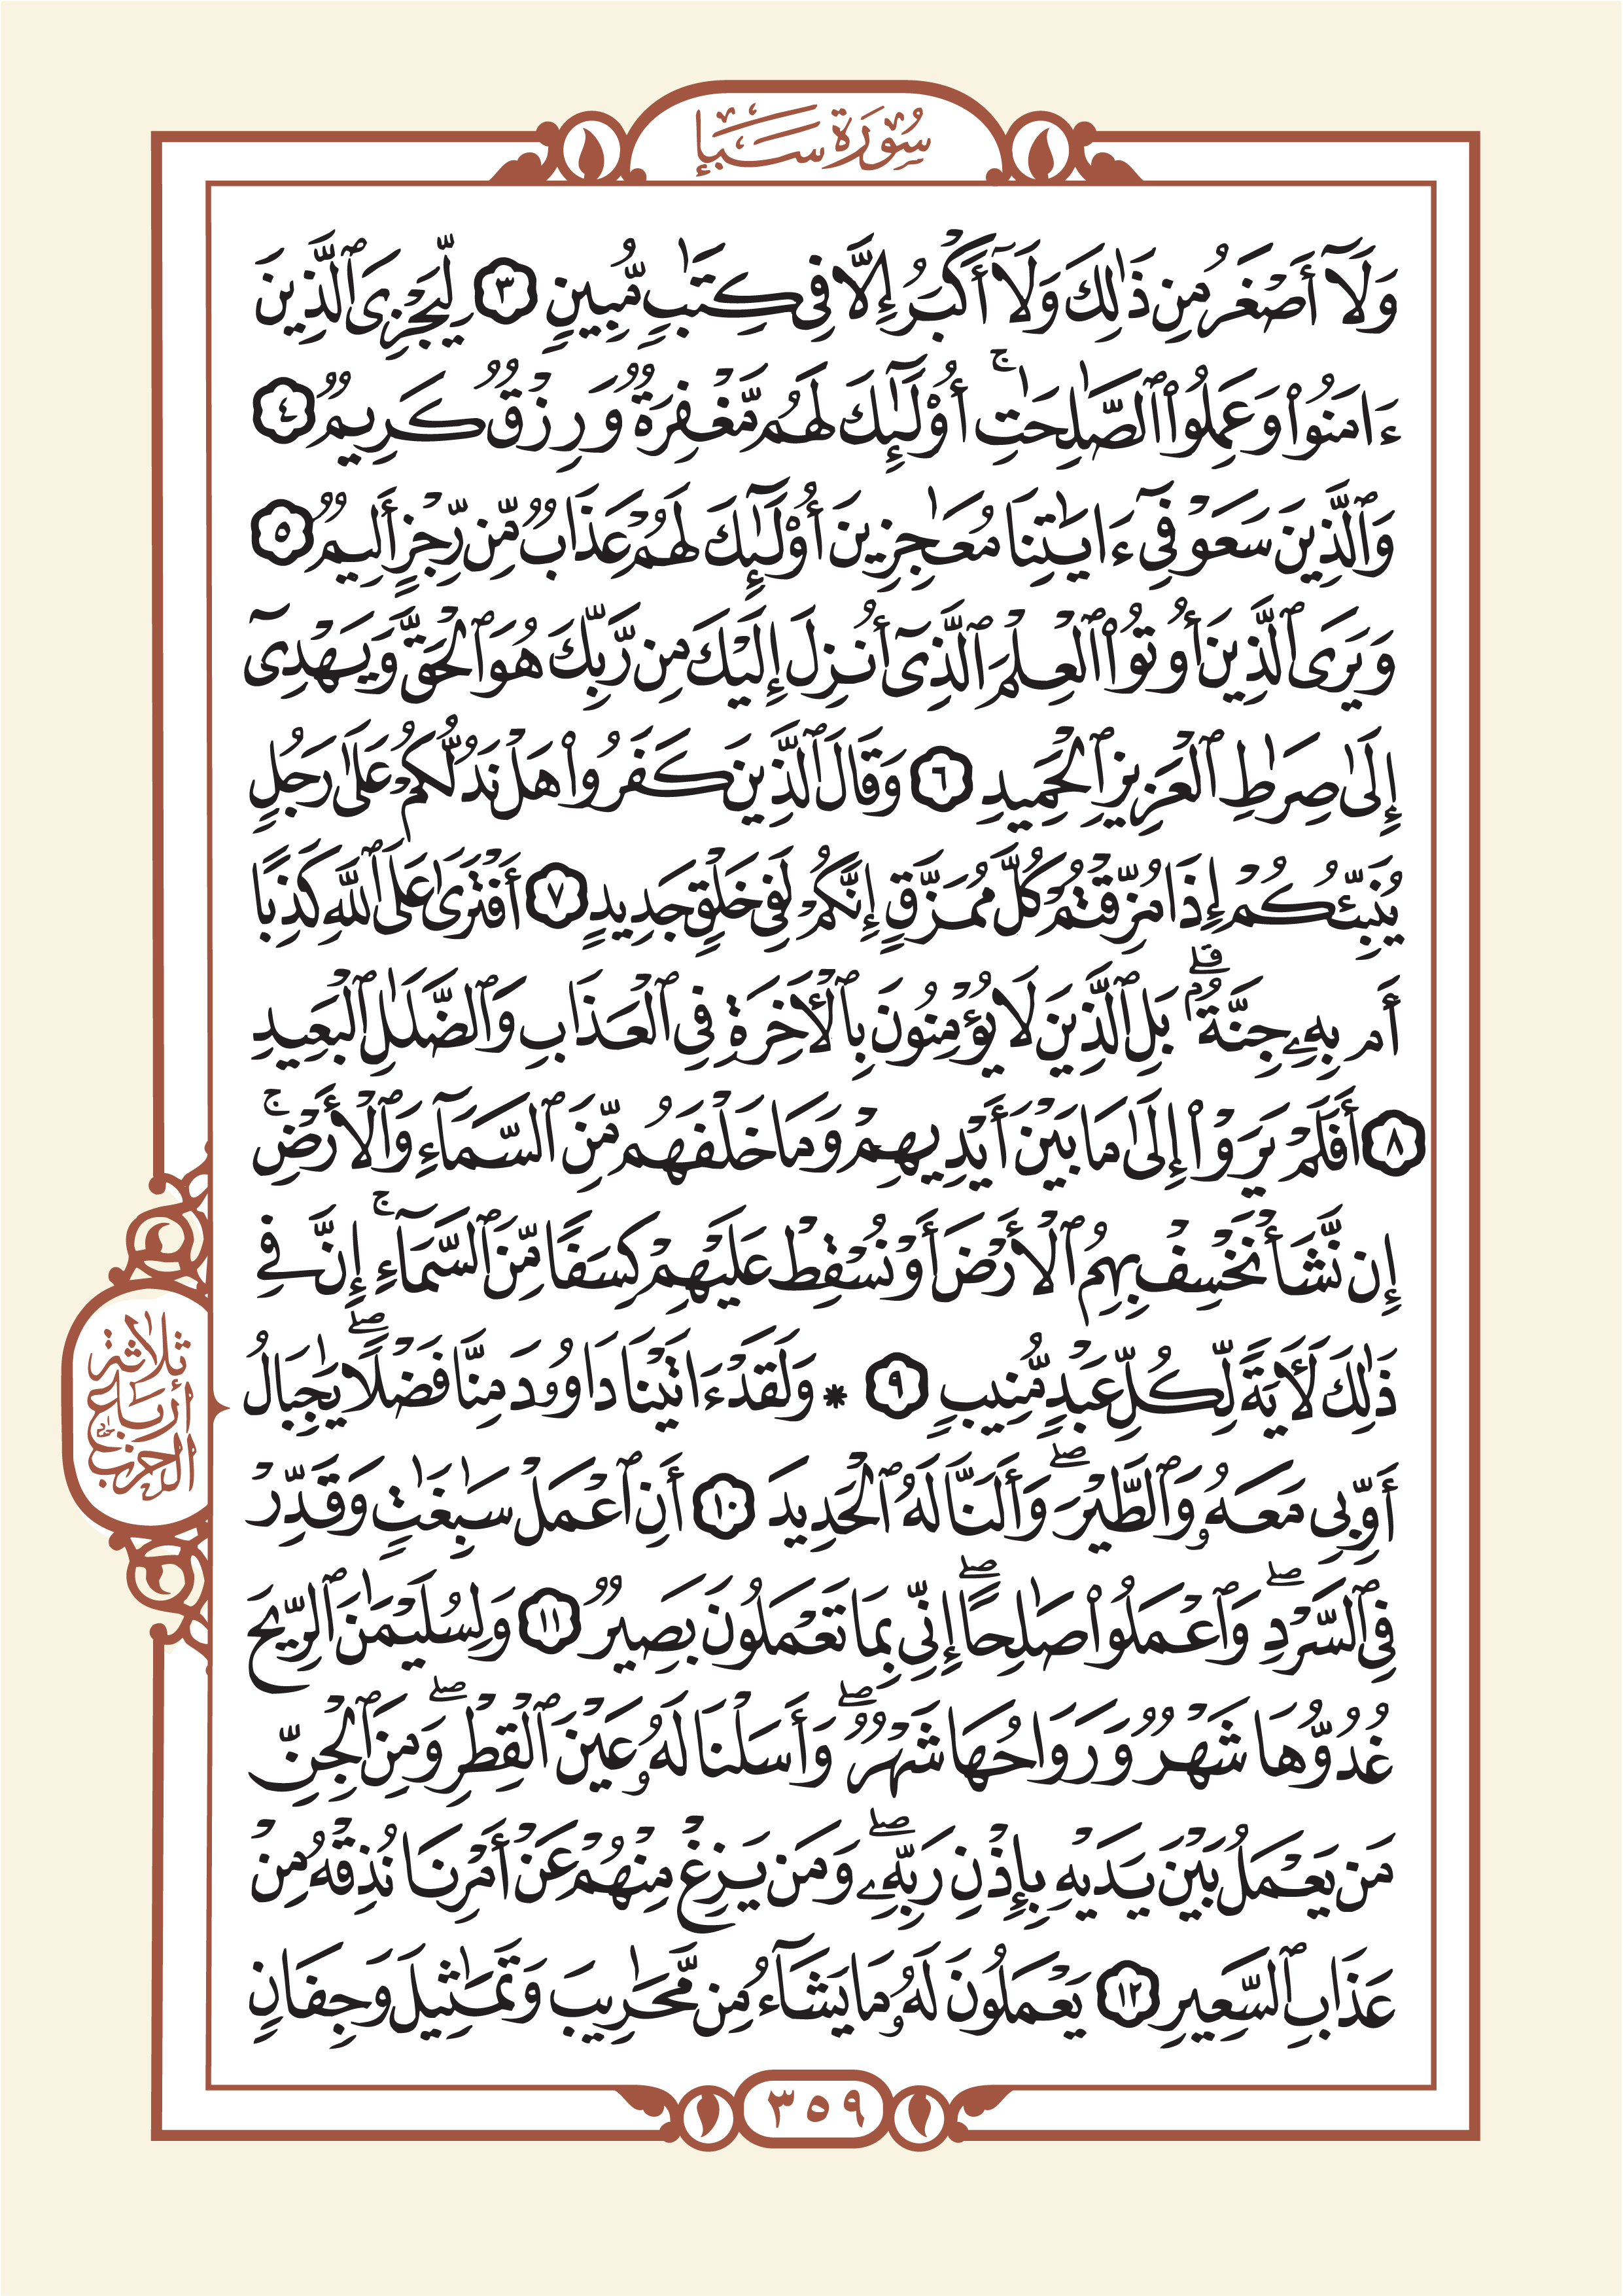 سُورَةُ سَبَإٍ
وَلَآ أَصْغَرُ مِن ذَٰلِكَ وَلَآ أَكْبَرُ إِلَّا فِى كِتَٰبٍ مُّبِينٍ ٣ لِّيَجْزِىَ ٱلَّذِينَ
ءَامَنُوا۟ وَعَمِلُوا۟ ٱلصَّٰلِحَٰتِ ۚ أُو۟لَٰٓئِكَ لَهُم مَّغْفِرَةٌ وَرِزْقٌ كَرِيمٌ ٤
وَٱلَّذِينَ سَعَوْ فِىٓ ءَايَٰتِنَا مُعَٰجِزِينَ أُو۟لَٰٓئِكَ لَهُمْ عَذَابٌ مِّن رِّجْزٍ أَلِيمٌ ٥
وَيَرَى ٱلَّذِينَ أُوتُوا۟ ٱلْعِلْمَ ٱلَّذِىٓ أُنزِلَ إِلَيْكَ مِن رَّبِّكَ هُوَ ٱلْحَقَّ وَيَهْدِىٓ
إِلَىٰ صِرَٰطِ ٱلْعَزِيزِ ٱلْحَمِيدِ ٦ وَقَالَ ٱلَّذِينَ كَفَرُوا۟ هَلْ نَدُلُّكُمْ عَلَىٰ رَجُلٍ
يُنَبِّئُكُمْ إِذَا مُزِّقْتُمْ كُلَّ مُمَزَّقٍ إِنَّكُمْ لَفِى خَلْقٍ جَدِيدٍ ٧ أَفْتَرَىٰ عَلَى ٱللَّهِ كَذِبًا
أَم بِهِۦ جِنَّةٌۢ ۗ بَلِ ٱلَّذِينَ لَا يُؤْمِنُونَ بِٱلْأَخِرَةِ فِى ٱلْعَذَابِ وَٱلضَّلَٰلِ ٱلْبَعِيدِ
٨ أَفَلَمْ يَرَوْا۟ إِلَىٰ مَا بَيْنَ أَيْدِيهِمْ وَمَا خَلْفَهُم مِّنَ ٱلسَّمَآءِ وَٱلْأَرْضِ ۚ
إِن نَّشَأْ نَخْسِفْ بِهِمُ ٱلْأَرْضَ أَوْ نُسْقِطْ عَلَيْهِمْ كِسَفًا مِّنَ ٱلسَّمَآءِ ۚ إِنَّ فِى
ذَٰلِكَ لَأَيَةً لِّكُلِّ عَبْدٍ مُّنِيبٍ ٩ * وَلَقَدْ ءَاتَيْنَا دَاوُۥدَ مِنَّا فَضْلًا ۖ يَٰجِبَالُ
أَوِّبِى مَعَهُۥ وَٱلطَّيْرَ ۖ وَأَلَنَّا لَهُ ٱلْحَدِيدَ ١٠ أَنِ ٱعْمَلْ سَٰبِغَٰتٍ وَقَدِّرْ
فِى ٱلسَّرْدِ ۖ وَٱعْمَلُوا۟ صَٰلِحًا ۖ إِنِّى بِمَا تَعْمَلُونَ بَصِيرٌ ١١ وَلِسُلَيْمَٰنَ ٱلرِّيحَ
غُدُوُّهَا شَهْرٌ وَرَوَاحُهَا شَهْرٌ ۖ وَأَسَلْنَا لَهُۥ عَيْنَ ٱلْقِطْرِ ۖ وَمِنَ ٱلْجِنِّ
مَن يَعْمَلُ بَيْنَ يَدَيْهِ بِإِذْنِ رَبِّهِۦ ۖ وَمَن يَزِغْ مِنْهُمْ عَنْ أَمْرِنَا نُذِقْهُ مِنْ
عَذَابِ ٱلسَّعِيرِ ١٢ يَعْمَلُونَ لَهُۥ مَا يَشَآءُ مِن مَّحَٰرِيبَ وَتَمَٰثِيلَ وَجِفَانٍ
ثلاثة
أرباع
الحزب
٣٥٩